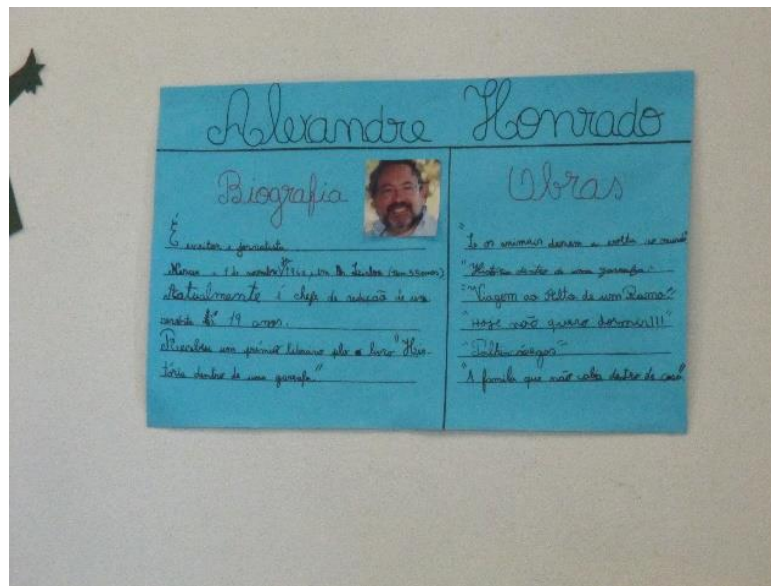 Alexandre Honrado
Biografia
É escritor e jornalista
Nasceu a 1 de novembro 1960, em Lisboa (tem 55 anos)
Atatualmente é chefe de redação de
revista há 19 anos.
Recebeu um prémio literário plo o livro "His-
tória dentro de uma garrafa"
Obras
"Se os animais derem a volta ao mundo"
"História dentro de uma garrafa"
"Viagem ao Alto de um Ramo"
"Hoje não quero dormir!!!"
"A família que não cabia dentro de casa"